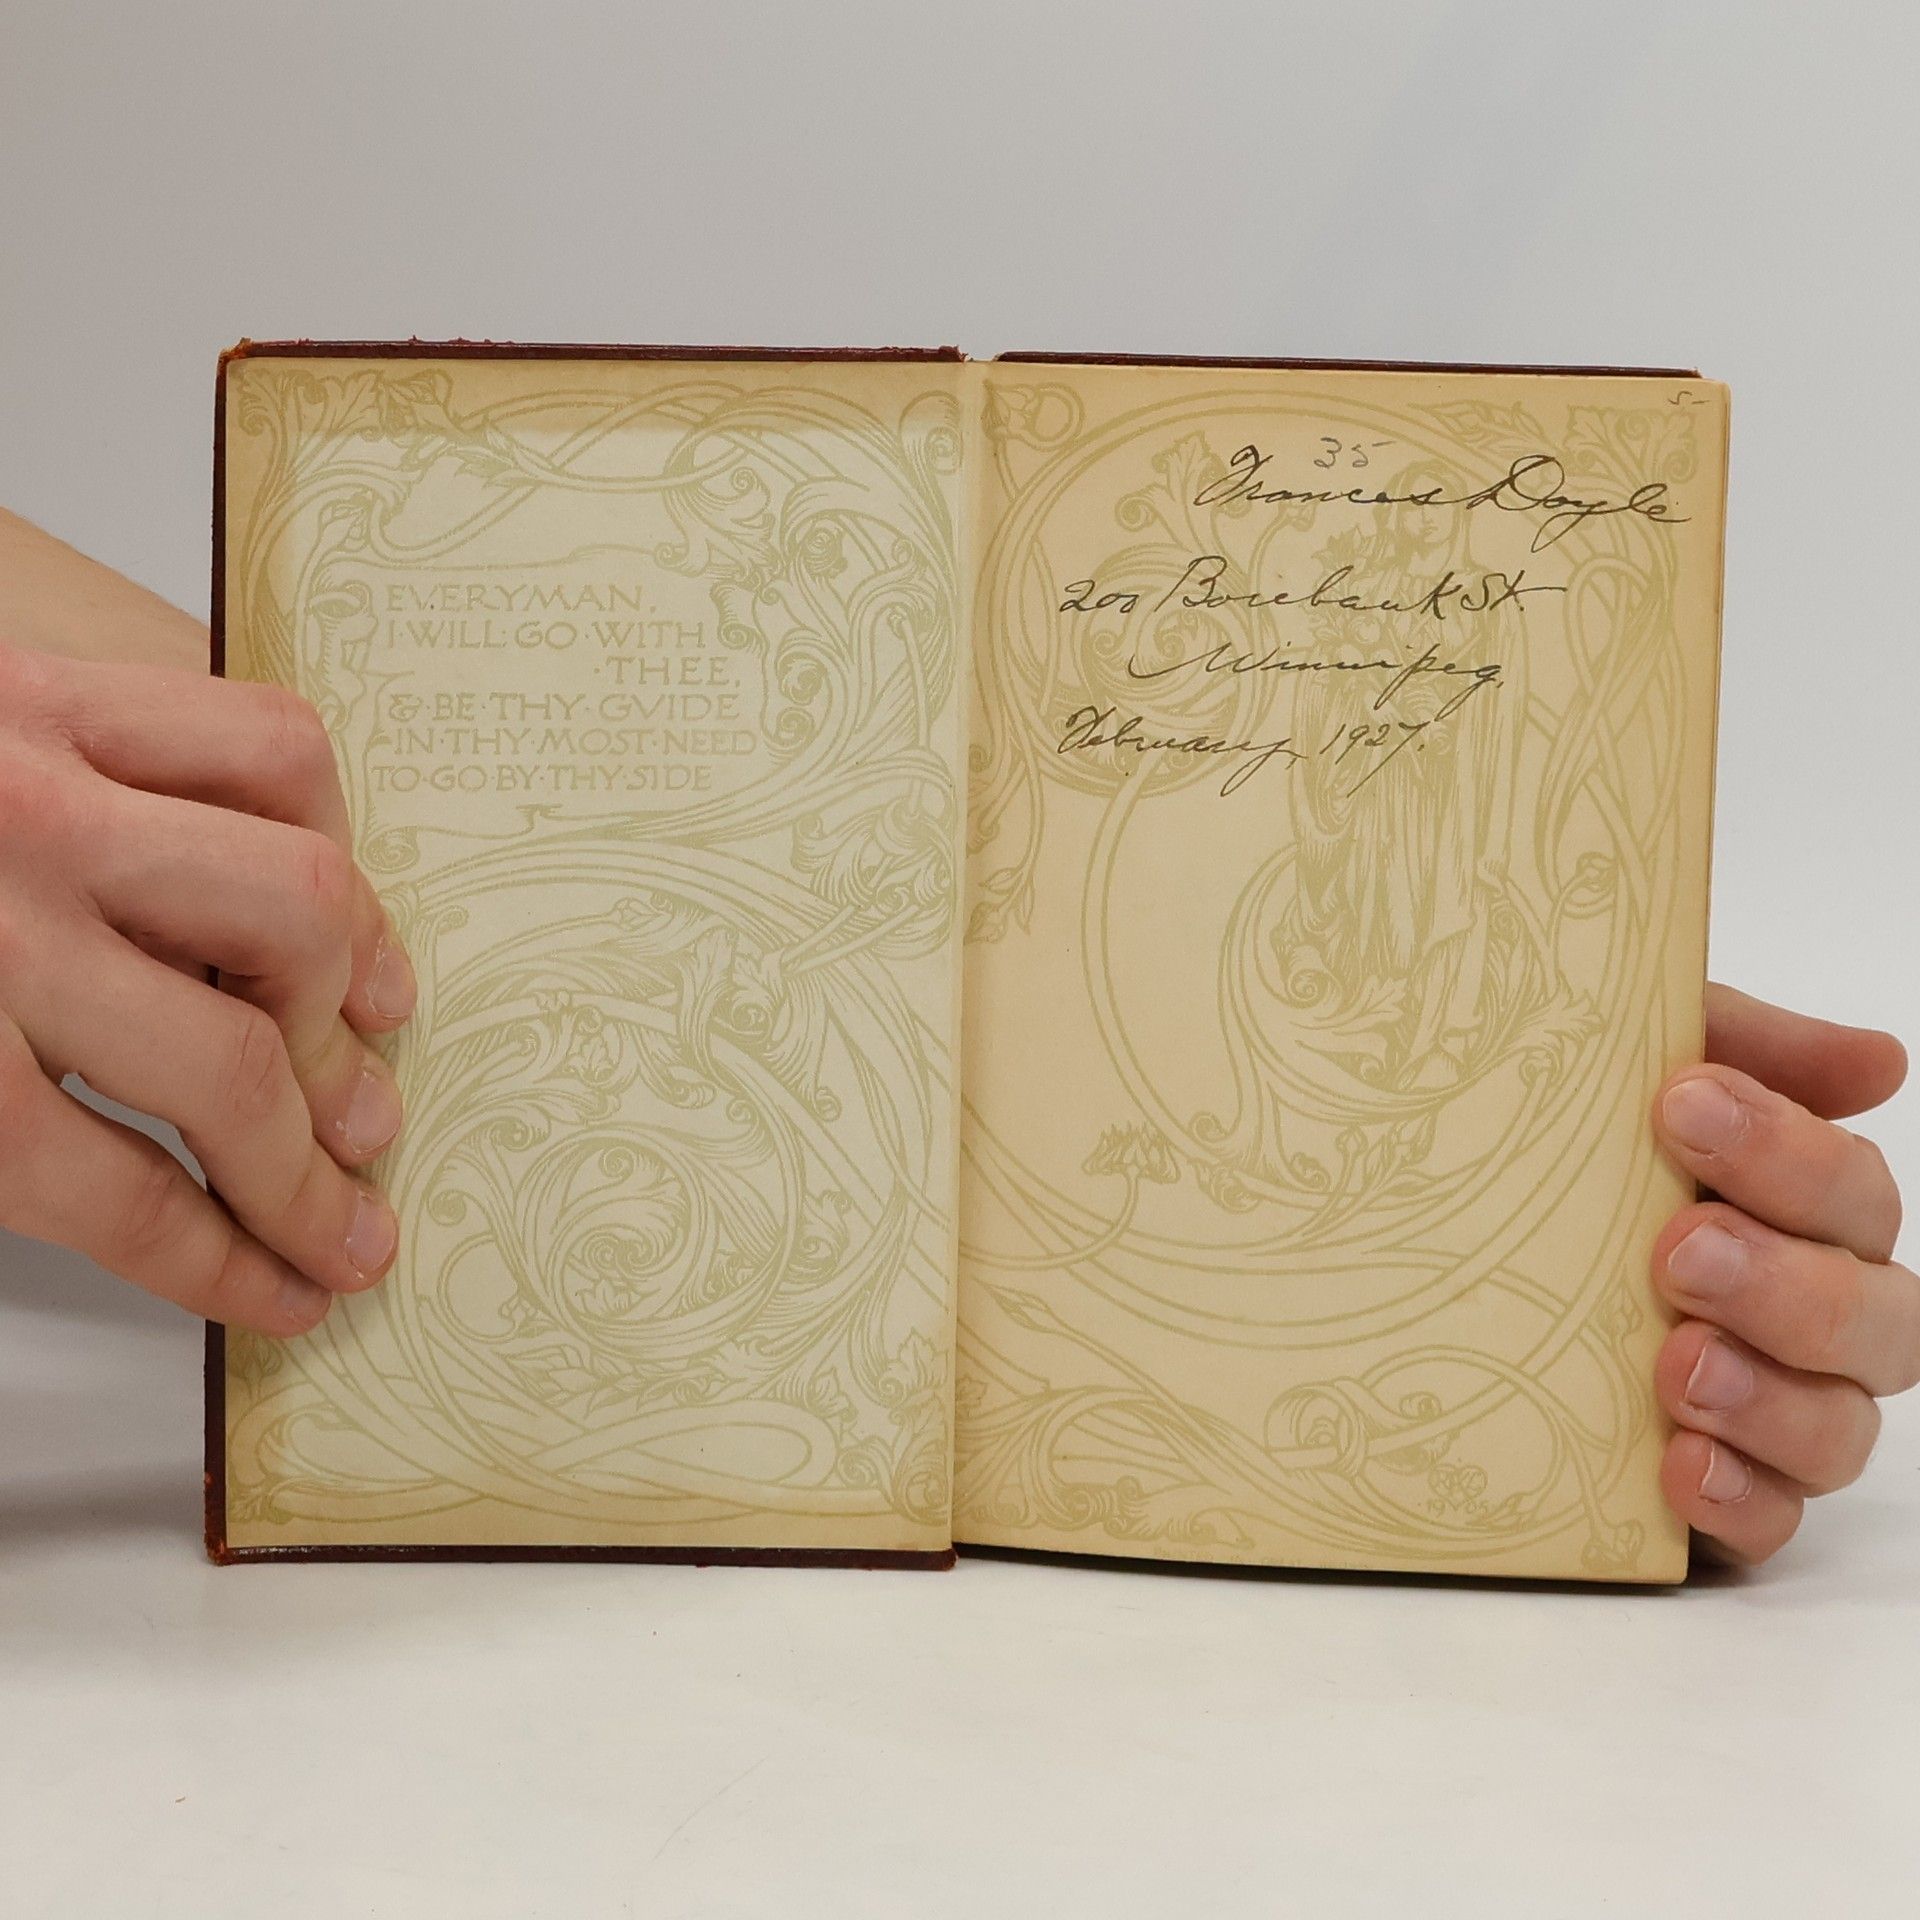 EVERYMAN,
I·WILL·GO·WITH
·THEE,
&·BE·THY·GVIDE
IN·THY·MOST·NEED
TO·GO·BY·THY·SIDE
5-
35
Frances Doyle
200 Borebank St.
Winnipeg,
February, 1927.
RLK
19 05